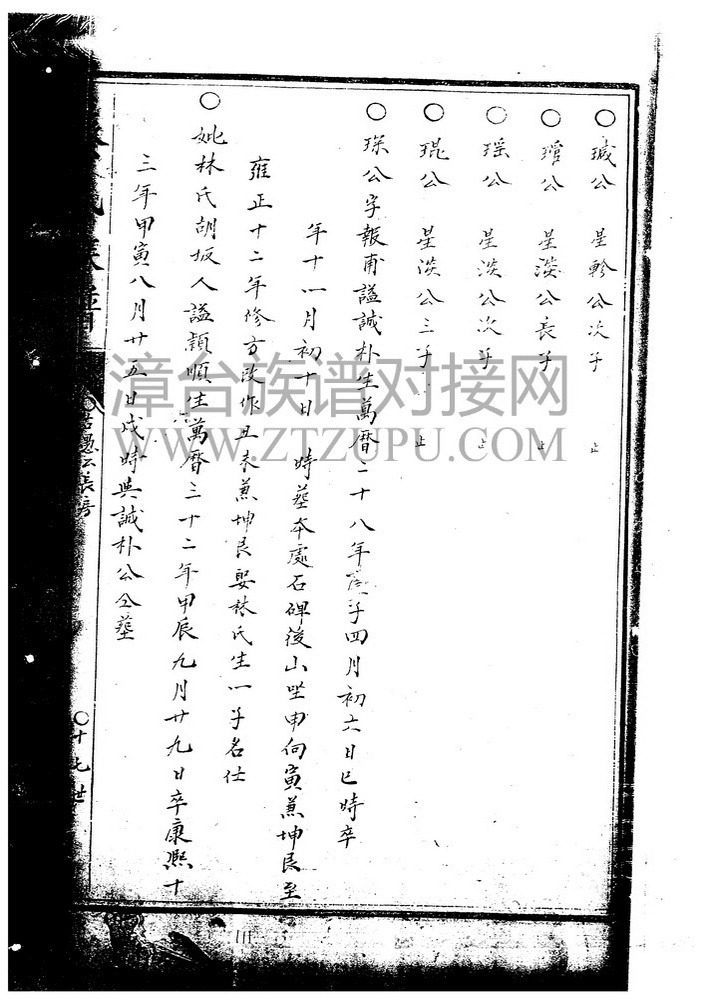 瑊公 星軫公次子 止
瑄公 星淡公長子 止
瑶公 星淡公次子 止
琨公 星淡公三子 止
琛公字報甫謚誠朴生萬曆二十八年庚子四月初六日巳時卒
年十一月初十日 時葬本處石碑後山坐申向寅兼坤艮至
雍正十二年修方改作丑未兼坤艮娶林氏生一子名仕
妣林氏胡坂人謚穎順生萬曆三十二年甲辰九月廿九日卒康熙十
三年甲寅八月廿五日戌時與誠朴公仝葬
氏族譜
公長房
十七世
漳台族谱对接网
WWW.ZTZUPU.COM